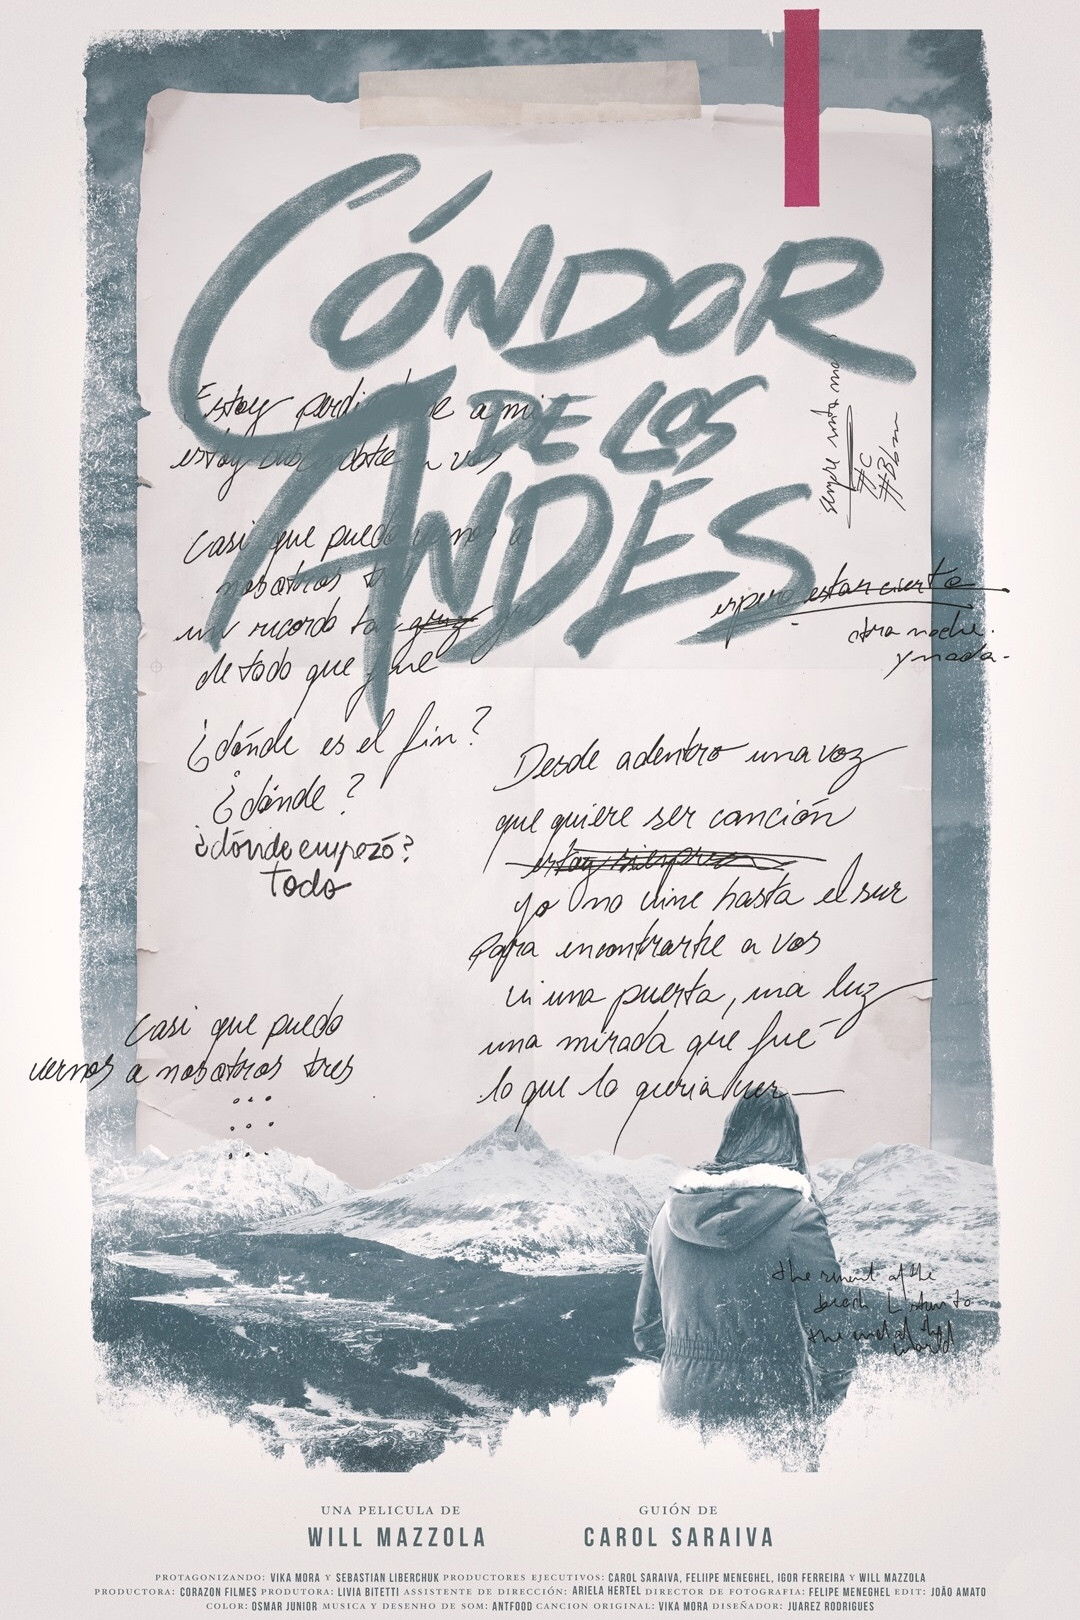 CÓNDOR
DE LOS
ANDES
Estoy a mi
estoy
Casi que puedo a
nosotros
un recordo
de todo que fue
¿dónde es el fin?
¿dónde?
¿dónde empezó?
Todo
Casi que puedo
vernos a nosotros tres
...
...
...
siempre
#C
espero estar cierto
otra noche.
y nada.
Desde adentro una voz
que quiere ser canción
yo no vine hasta el sur
Para encontrarte a vos
vi una puerta, una luz
una mirada que fué
lo que lo queria ver
the of the
listen to
the of the
world
UNA PELICULA DE
WILL MAZZOLA
GUIÓN DE
CAROL SARAIVA
PROTAGONIZANDO: VIKA MORA Y SEBASTIAN LIBERCHUK PRODUCTORES EJECUTIVOS: CAROL SARAIVA, FELIIPE MENEGHEL, IGOR FERREIRA Y WILL MAZZOLA
PRODUCTORA: CORAZON FILMES PRODUTORA: LIVIA BITETTI ASSISTENTE DE DIRECCIÓN: ARIELA HERTEL DIRECTOR DE FOTOGRAFIA: FELIPE MENEGHEL EDIT: JOÃO AMATO
COLOR: OSMAR JUNIOR MUSICA Y DESENHO DE SOM: ANTFOOD CANCION ORIGINAL: VIKA MORA DISEÑADOR: JUAREZ RODRIGUES